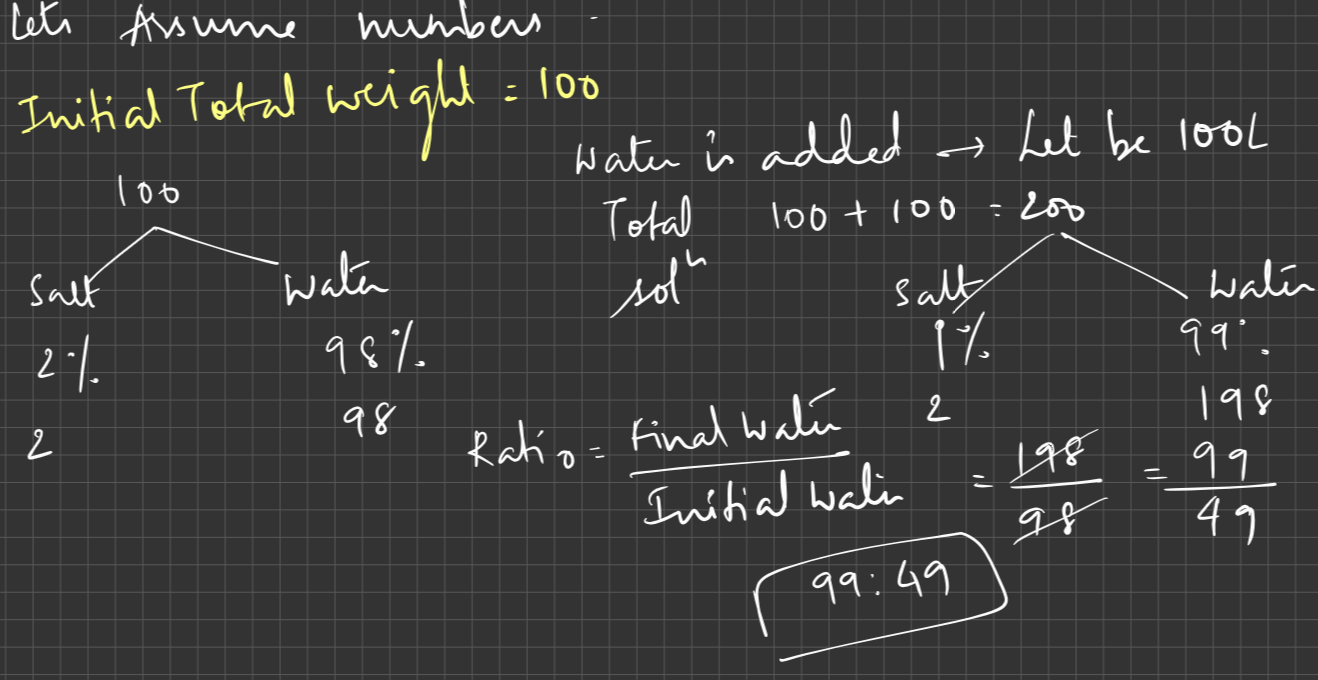 Lets Assume numbers -
Initial Total weight = 100
Water is added → Let be 100L
100
Total 100 + 100 = 200
Salt Water
solⁿ
Salt Water
2% 98%
1% 99%
2 98
2 198
Ratio = Final Water / Initial Water = 198 / 98 = 99 / 49
99 : 49